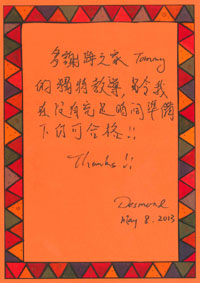 多謝舞之家 Tommy
的獨特教學,易令我
在沒有充足的時間準備
下仍可合格!!
Thanks!!
Desmond
May 8. 2013